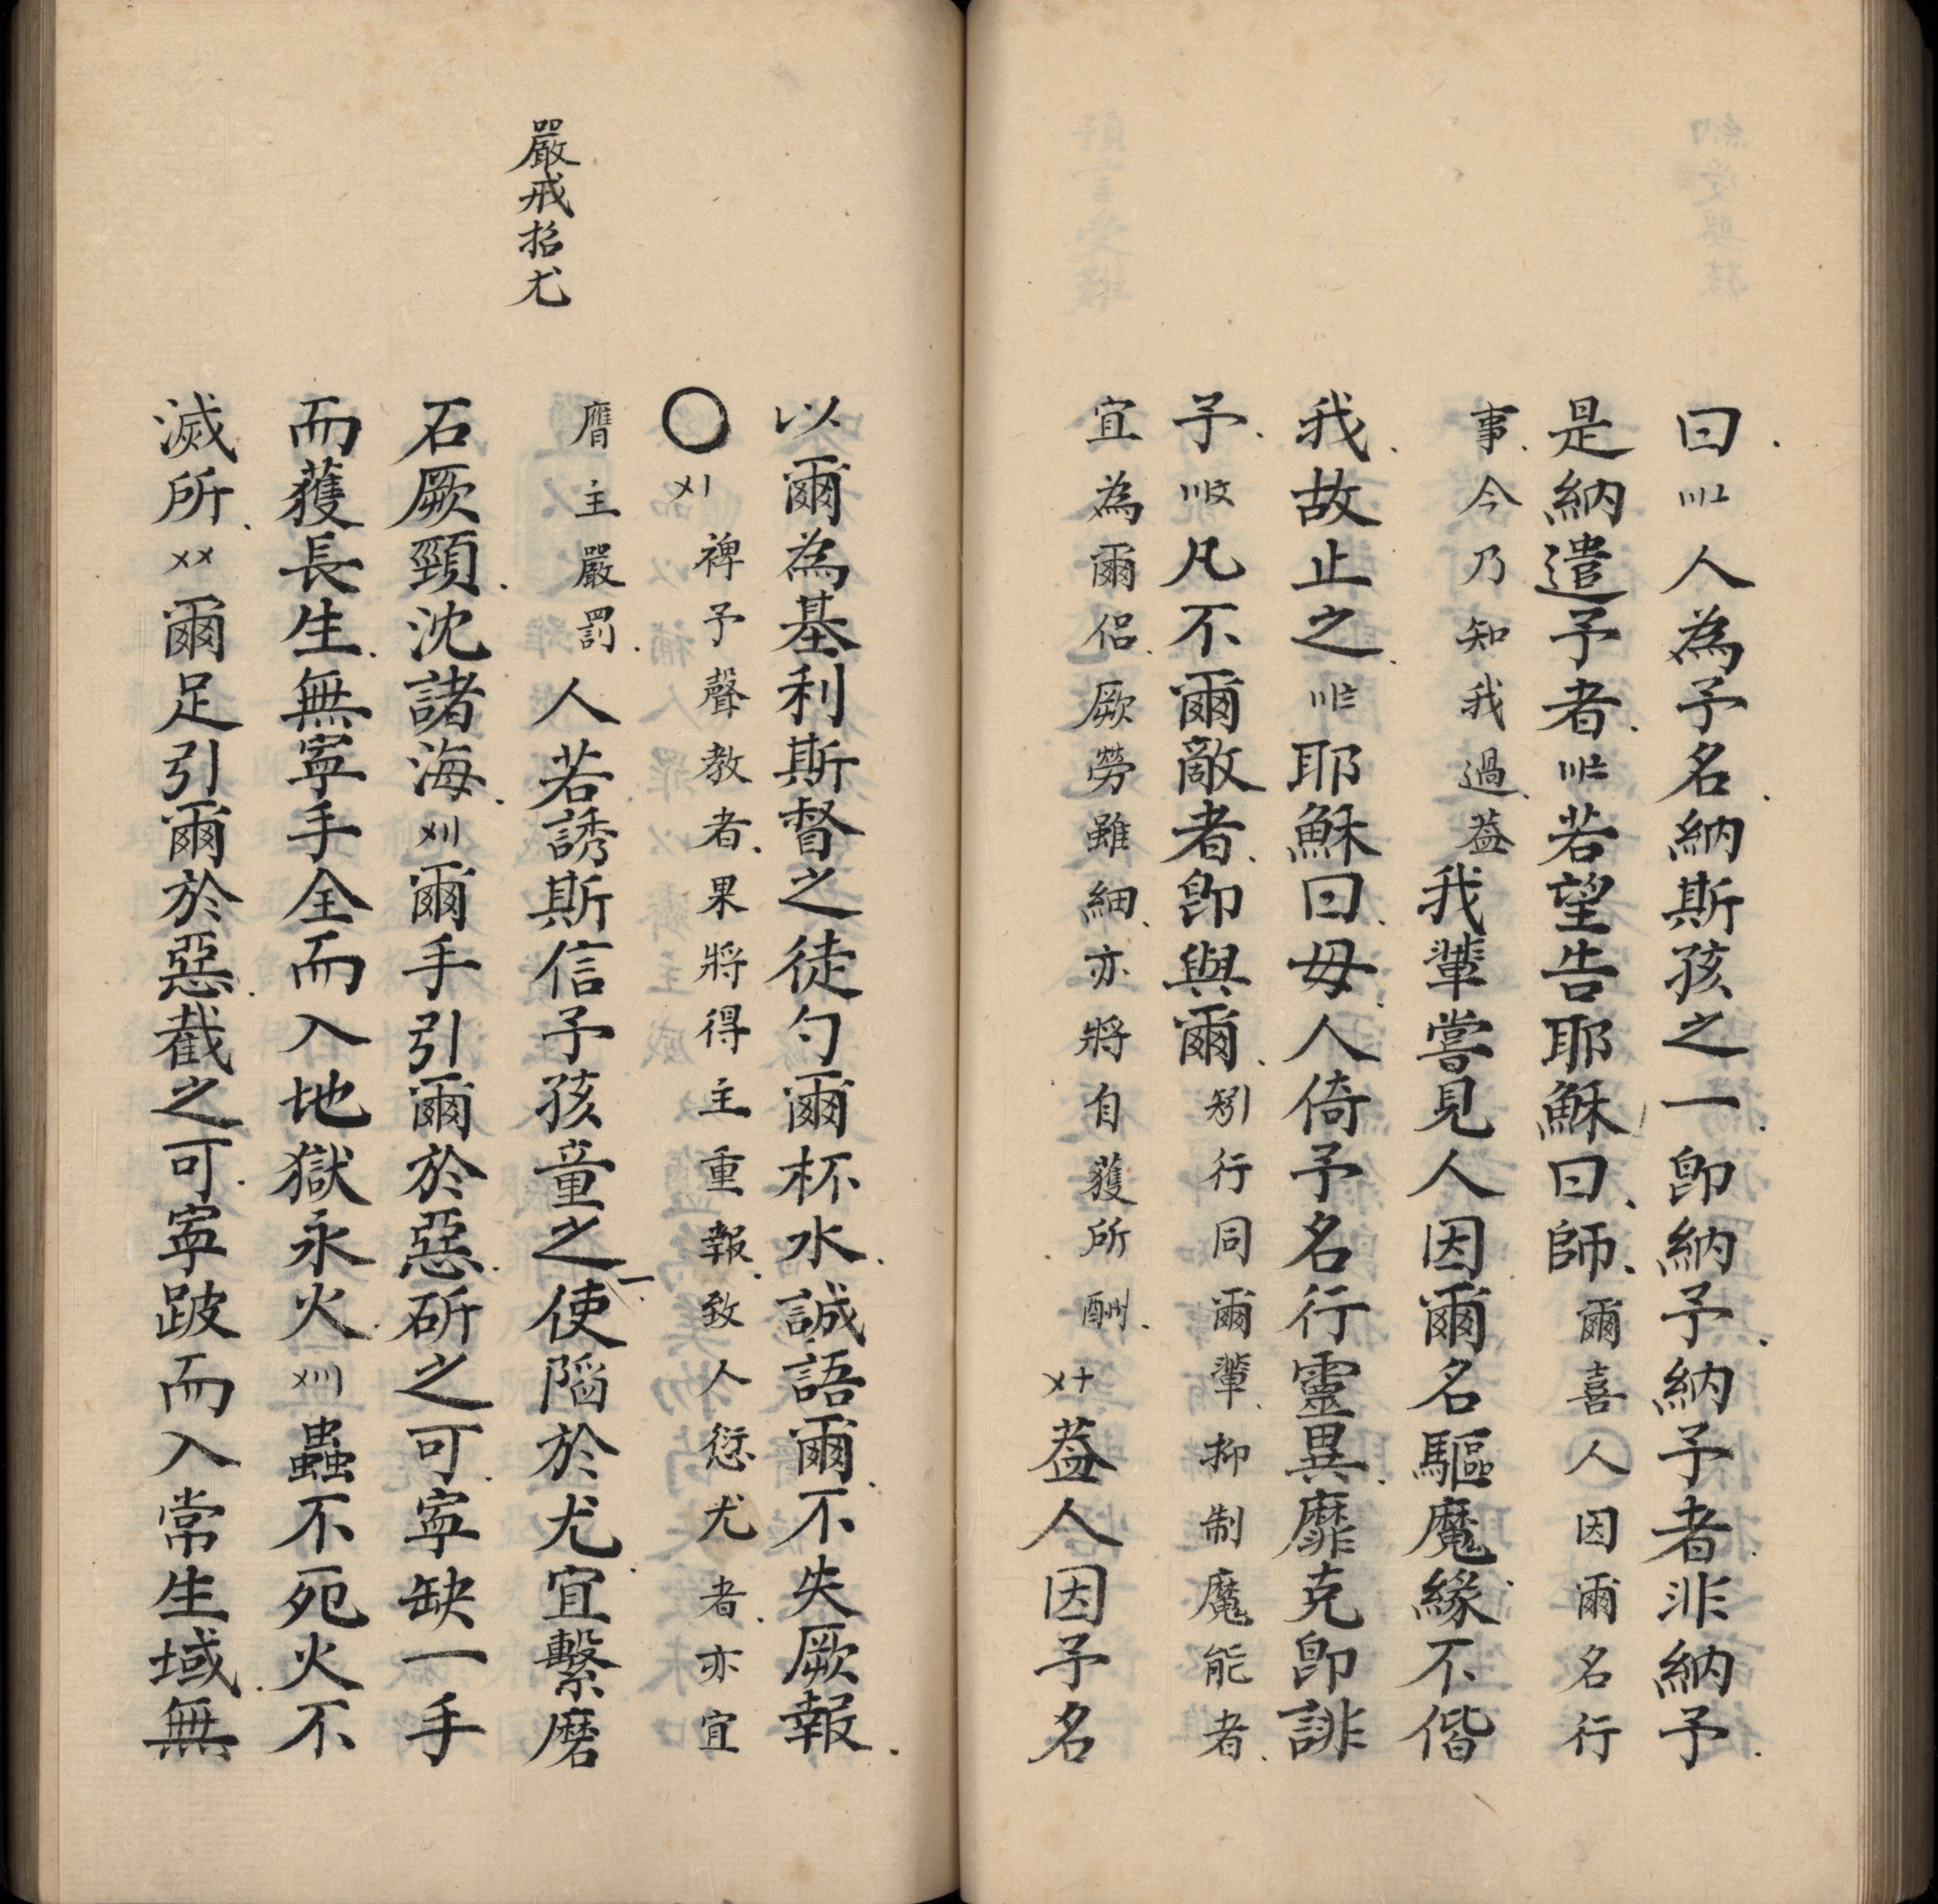 曰〣〧人為予名納斯孩之一即納予納予者非納予
是納遣予者〣〨若望告耶穌曰師爾喜人因爾名行
事今乃知我過葢我輩嘗見人因爾名驅魔緣不偕
我故止之〣〨耶穌曰毋人倚予名行靈異靡克即誹
予〣〩凡不爾敵者即與爾矧行同爾輩抑制魔能者
宜為爾侶厥勞雖細亦將自獲所酬〤十葢人因予名
以爾為基利斯督之徒勺爾杯水誠語爾不失厥報
〇〤〡裨予聲教者果將得主重報致人愆尤者亦宜
嚴戒招尤
膺主嚴罰人若誘斯信予孩童之一使陷於尤宜繫磨
石厥頸沈諸海〤〢爾手引爾於惡斫之可寜缺一手
而獲長生無寜手全而入地獄永火〤〣蟲不死火不
滅所〤〤爾足引爾於惡截之可寜跛而入常生域無